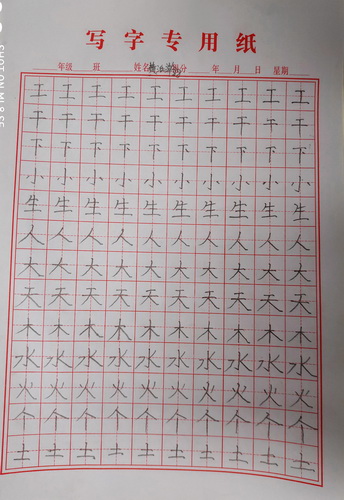 写字专用纸
年级 班 姓名 分 年 月 日 星期
工 工 工 工 工 工 工 工 工 工
干 干 干 干 干 干 干 干 干 干
下 下 下 下 下 下 下 下 下 下
小 小 小 小 小 小 小 小 小 小
生 生 生 生 生 生 生 生 生 生
人 人 人 人 人 人 人 人 人 人
大 大 大 大 大 大 大 大 大 大
天 天 天 天 天 天 天 天 天 天
木 木 木 木 木 木 木 木 木 木
水 水 水 水 水 水 水 水 水 水
火 火 火 火 火 火 火 火 火 火
个 个 个 个 个 个 个 个 个 个
土 土 土 土 土 土 土 土 土 土
SHOT ON MI 8 SE